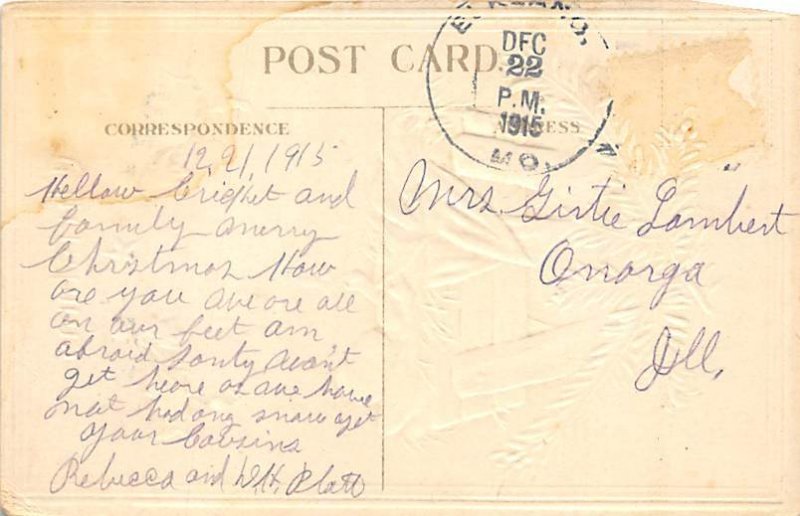 POST CARD.
DEC
22
P.M.
1915
MO.
CORRESPONDENCE
ADDRESS
12,21,1915
Hellow Cricket and
family merry
Christmas How
are you ave are all
on aur feet am
afraid Santy wan't
get heare as we have
nat had any snaw yet
yaur Cousins
Rebecca and W.H. Platt
Mrs. Girtie Lambert
Onarga
Ill.